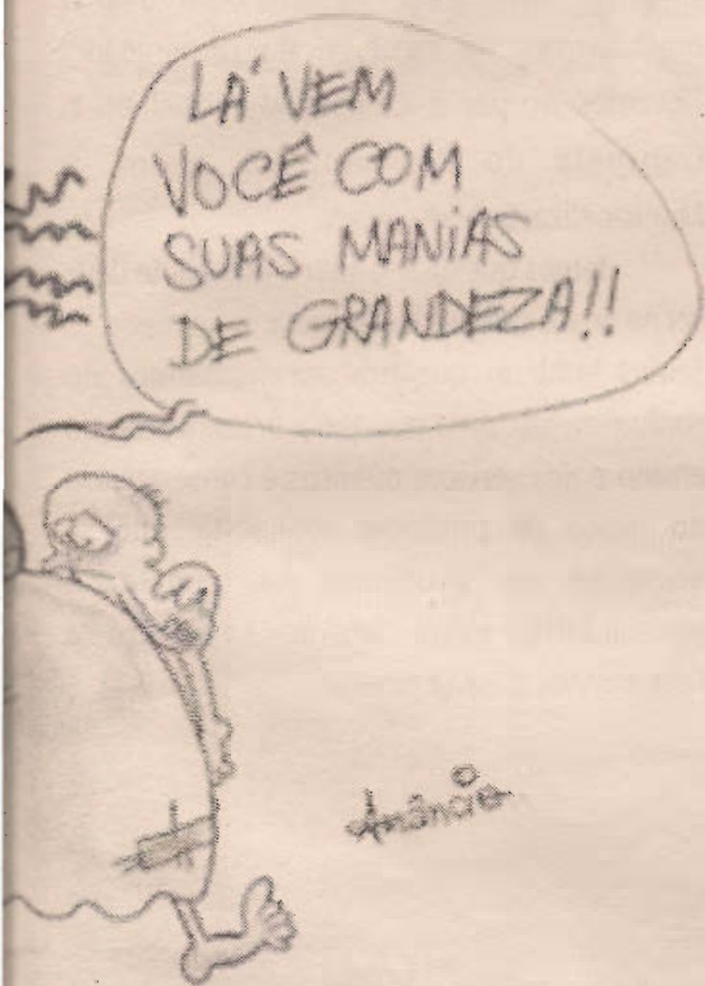 LÁ VEM
VOCÊ COM
SUAS MANIAS
DE GRANDEZA!!
Amâncio